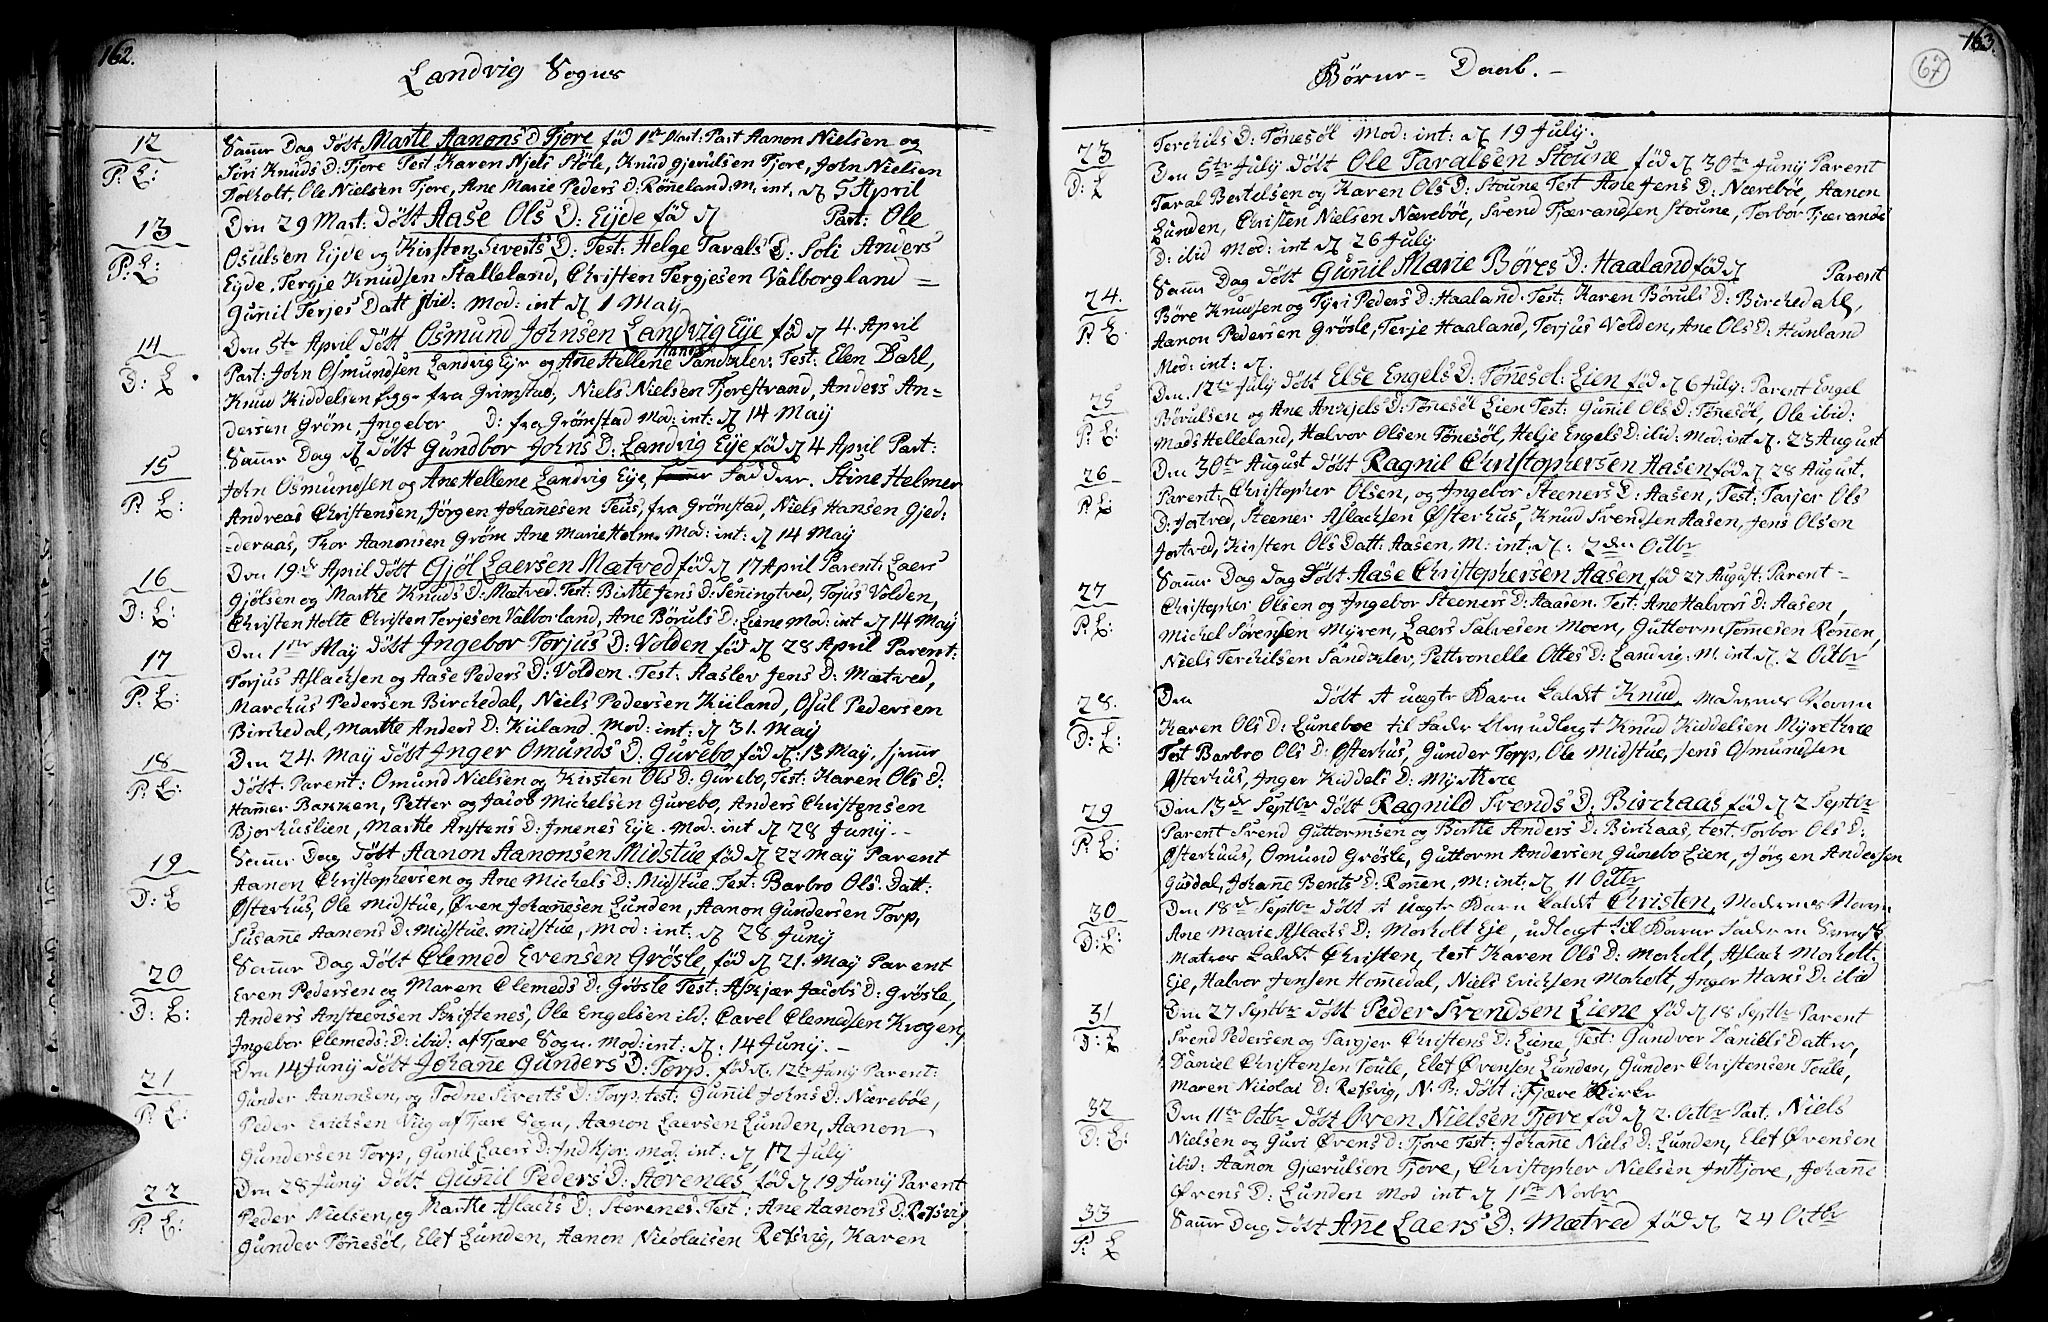 162.
Landvig Sogns
12
P: L:
Samme Dag døbt Marte Aanons D Fjore fød 1ste Mart: Part Aanon Nielsen og
Siri Knuds D: Fjore Test Karen Niels Støle, Knud Gjerulsen Fjore, John Nielsen
Folholt, Ole Nielsen Fjore, Ane Marie Peders D: Røneland M. int. d 5 April
13
P: L:
Den 29 Mart: døbt Aase Ols D: Eyde fød d Part: Ole
Osulsen Eyde og Kirsten Siverts D: Test: Helge Tarals D: Soli Anders
Eyde, Tergje Knudsen Stalleland, Christen Tergjesen Valborgland =
Gunil Terjes Datt ibid: Mod: int d 1 May
14
D: L
Den 5te April døbt Osmund Johnsen Landvig Eye fød d 4. April
Part: John Osmundsen Landvig Eye og Ane Hellene Hans Sandklev. Test: Elen Dahl,
Knud Kiddelsen Egge fra Grimstad, Niels Nielsen Fjorestrand, Anders An=
dersen Grøm, Ingebor D: fra Grønstad Mod: int: d 14 May
15
P: L:
Samme Dag d døbt Gundbor Johns D: Landvig Eye fød d 4 April Part:
John Osmundsen og Ane Hellene Landvig Eye, Faddere. Stine Helmer
Andreas Christensen, Jørgen Johanesen Teus, fra Grømstad, Niels Hansen Gjed:
=deraas, Thor Aanonsen Grøm Ane Marie Holm. Mod: int: d 14 May
16
D: L:
Den 19de April døbt Gjøl Laersen Mætved fød d 17 April Parent: Laers
Gjølsen og Marthe Knuds D: Mætved. Test: Birthe Jens D: Seningtved, Tojus Volden,
Christen Holte Christen Terjesen Valborland, Ane Børuls D: Liene Mod: int d 14 May
17
P: L:
Den 1ste May døbt Ingebor Torjus D: Volden fød d 28 April Parent:
Torjus Aslachsen og Aase Peders D: Volden. Test: Aaslev Jens D: Mætved,
Marchus Pedersen Birchedal, Niels Pedersen Kiiland, Osul Pedersen
Birchedal, Marthe Anders D: Kiiland. Mod: int: d 31. May
18
P: L:
Den 24. May døbt Inger Omunds D: Gurebo, fød d: 13 May, hjemme
døbt. Parent: Omund Nielsen og Kirsten Ols D: Gurebo, Test: Karen Ols D:
Hammer Bakken, Petter og Jacob Michelsen Gurebo, Anders Christensen
Bjorhuslien, Marthe Anstens D: Imenes Eye. Mod: int d 28 Juny. -
19
D: L
Samme Dag døbt Aanon Aanonsen Midstue fød d 22 May Parent
Aanon Christophersen og Ane Michels D: Midstue. Test: Barbro Ols. Datt:
Østerhus, Ole Midstue, Øven Johanesen Lunden, Aanon Gundersen Torp,
Susane Aanons D: Midstue. Midstue, Mod: int: d 28 Juny
20
D: L:
Samme Dag døbt Clemed Evensen Grøsle, fød d 21. May Parent
Even Pedersen og Maren Clemeds D: Grøsle Test: Askjær Jacobs D: Grøsle,
Anders Ansteensen Skiftenes, Ole Engelsen ibd: Cavel Clemedsen Krogen,
Ingebor Clemeds: D: ibid: af Fjære Sogn. Mod: int: d: 14 Juny. -
21
P: L:
Den 14 Juny døbt Johane Gunders D: Torp. fød d. 12te Juny Parent:
Gunder Aanonsen, og Todne Siverts D: Torp, test: Gunil Johns D: Nærebøe,
Peder Erichsen Viig af Fjære Sogn, Aanon Laersen Lunden, Aanon
Gundersen Torp, Gunil Laers D: Indkjor. Mod: int: d 12 July
22
P: L:
Den 28 Juny døbt Gunil Peders D: Størenes, fød d 19 Juny Parent
Peder Nielsen, og Marthe Aslachs D: Sterenes. Test: Ane Aanons D: Refsvig
Gunder Tønesøl, Elef Lunden, Aanon Nicolaisen Refsvig, Karen
163.
67
Børne- Daab. -
Terchils D: Tønesøl Mod: int: d 19 July.
23
D: L
Den 5te July døbt Ole Taralsen Stoune fød d 30te Juny Parent
Taral Bertelsen og Karen Ols D: Stoune Test Ane Jens D: Nærebøe, Aanon
Lunden, Christen Nielsen Nærebøe, Svend Fjærandsen Stoune, Torbor Fjærands
D: ibid Mod: int d 26 July.
24.
P: L:
Samme Dag døbt Gunil Marie Børes D: Haaland fød d Parent
Børe Knudsen og Tyri Peders D: Haaland. Test: Karen Børuls D: Birchedahl,
Aanon Pedersen Grøsle, Terje Haaland, Torjus Volden, Ane Ols D: Hunland
Mod: int: d.
25
P: L:
Den. 12te July døbt Else Engels D: Tønesøl: Lien fød d 6 July: Parent Engel
Børulsen og Ane Ankjels D: Tønesøl Lien Test: Gunil Ols D: Tønesøl, Ole ibid:
Mads Helleland, Halvor Olsen Tønesøl, Helje Engels D: ibid: Mod: int d. 23 August
26
P: L:
Den 30te August døbt Ragnil Christophersen Aasen fød d 28 August.
Parent: Christopher Olsen, og Ingebor Steeners D: Aasen, Test: Tarjer Ols
D: Jortved, Steener Aslachsen Østerhus, Knud Svendsen Aasen, Jens Olsen
Jortved, Kirsten Ols Datt: Aasen, M: int: d: 2den Octbr
27
P: L:
Samme Dag Dag døbt Aase Christophersen Aasen, fød 27 August: Parent-
Christopher Olsen og Ingebor Steeners D: Aaasen. Test: Ane Halvors D: Aasen,
Michel Sørensen Myren, Laers Salvesen Moen, Guttorm Tomesen Rønen,
Niels Terchilsen Sandklev, Pettronelle Ottes D: Landvig: M. int d. 2 Octbr
28.
D: L:
Den døbt et uægte Barn kaldt Knud, Moderens Navn
Karen Ols D: Luneboe til Fader blev udlagt Knud Kiddelsen Myrethræ
Test Barbro Ols D: Østerhus, Gunder Torp, Ole Midstue, Jens Osmundsen
Østerhus, Inger Kiddels D: Myrthræ
29
P: L:
Den 13de Septbr døbt Ragnild Svends D: Birchaas fød d 2 Septbr
Parent Svend Guttormsen og Birthe Anders D: Birchaas, test: Torbor Ols D:
Østerhuus, Omund Grøsle, Guttorm Andersen Gunebo Lien, Jørgen Andersen
Gusdal, Johane Bents D: Rønen, M: int: d 11 Octbr
30
D: L:
Den 18de Septbr døbt et uægte Barn kaldt Christen, Moderens Navn
Ane Marie Aslachs D: Morholt Eje, udlagt til Barne Fader en
Matros kaldt Christen, test Karen Ols D: Morholt, Aslach Morholt
Eje, Halvor Jensen Homedal, Niels Erichsen Morholt, Inger Hans D: ibid
31
D: L
Den 27 Septbr døbt Peder Svendsen Liene fød d 18 Septbr Parent
Svend Pedersen og Targjer Christens D: Liene Test: Gundvor Daniels Datter,
Daniel Christensen Toule, Elef Øvensen Lunden, Gunder Christensen Toule,
Maren Nicolai D: Refsvig, N: B: døbt i Fjære Kirke
32
D: L:
Den 11te Octbr døbt Øven Nielsen Fjore fød d 2. Octbr Part. Niels
Nielsen og Guri Øvens D: Fjore Test: Johane Niels D: Lunden, Elef Øvensen
ibid: Aanon Gjerulsen Fjore, Christopher Nielsen Intjore, Johane
Øvens D: Lunden Mod int d 1ste Novbr
33
P: L
Samme Dag døbt Ane Laers D: Mætved fød d. 24 Octbr